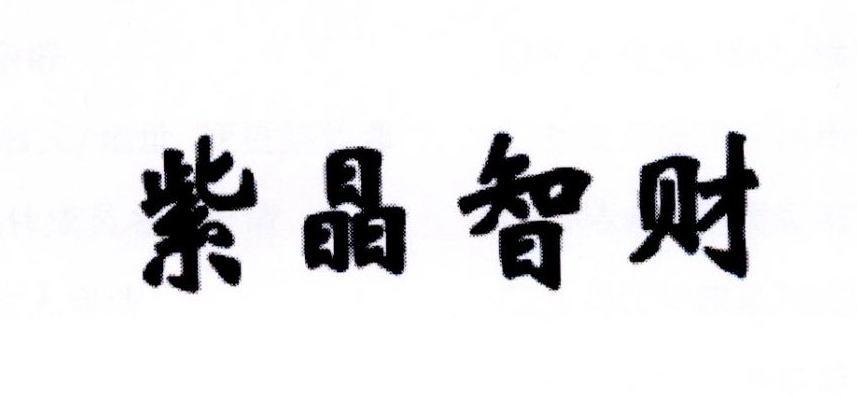 紫晶智财